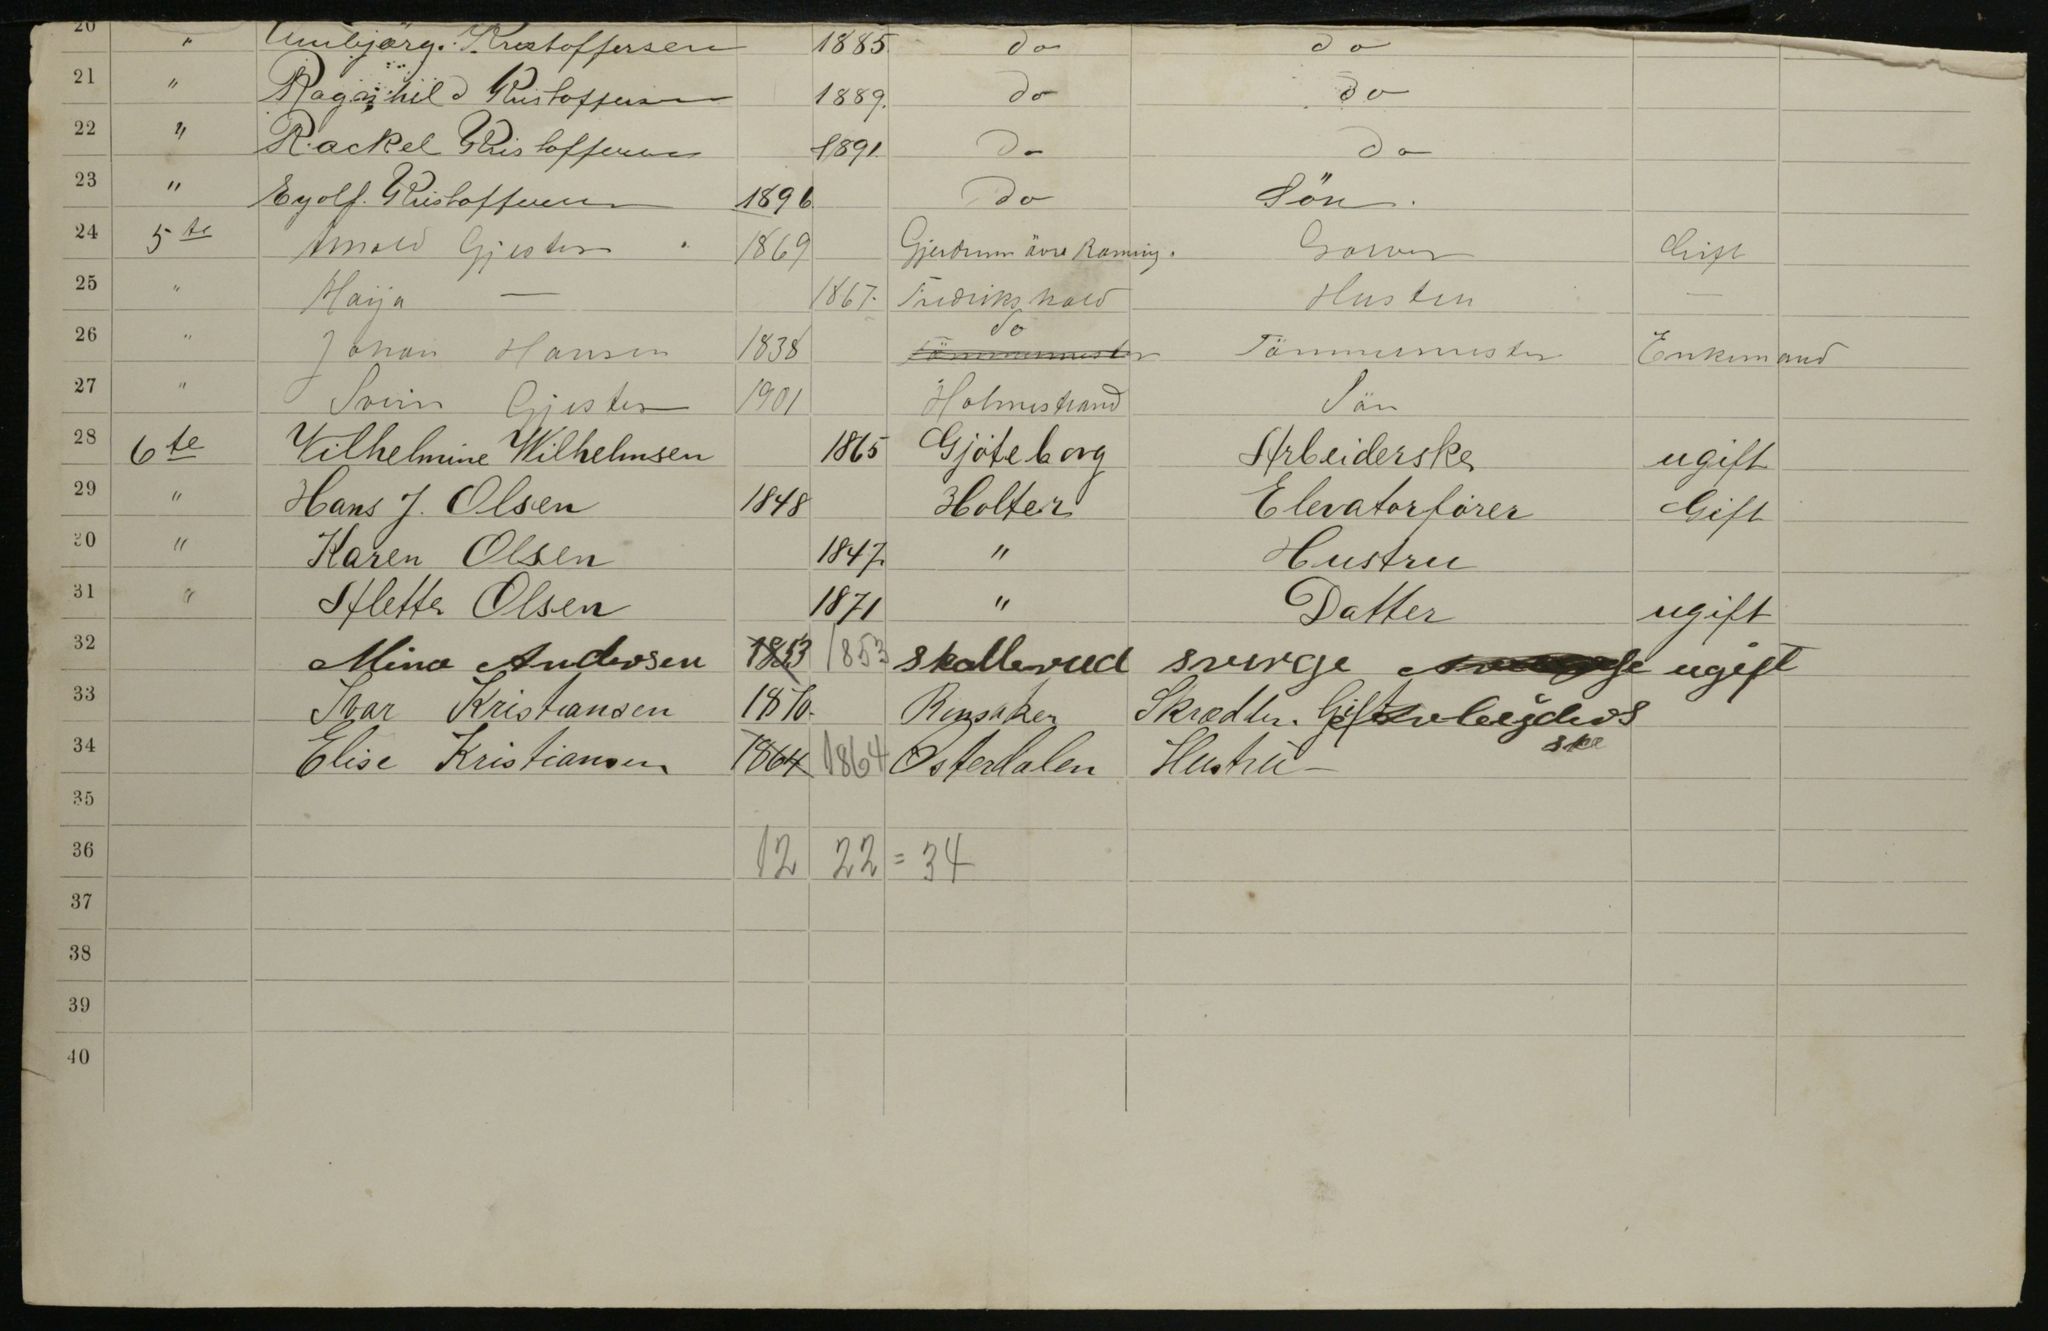 20 " Kristoffersen 1885 do do
21 " Ragnhild Kristoffersen 1889. do do
22 " Rackel Kristoffersen 1891. do do
23 " Eyolf. Kristoffersen 1896 do Sön.
24 5te Arnold Gjesten 1869 Gjerdrum övre Garver Gift
25 " Maija — 1867. Fredrikshald Hustru —
26 " Johan Hansen 1838 do Tömmermester Tömmermester Enkemand
27 " Svein Gjesten 1901 Holmestrand Sön
28 6te Vilhelmine Wilhelmsen 1865 Gjøteborg Arbeiderske ugift
29 " Hans J. Olsen 1848 Holter Elevatorfører Gift
30 " Karen Olsen 1847. " Hustru
31 " Aletta Olsen 1871 " Datter ugift
32 Mina Andersen 1853 1853 skallerud sverge ugift
33 Ivar Kristiansen 1870. Ringsaker Skrædder. Gift Arbeijders
ske
34 Elise Kristiansen 1864 1864 Østerdalen Hustru —
35
36 12 22 = 34
37
38
39
40